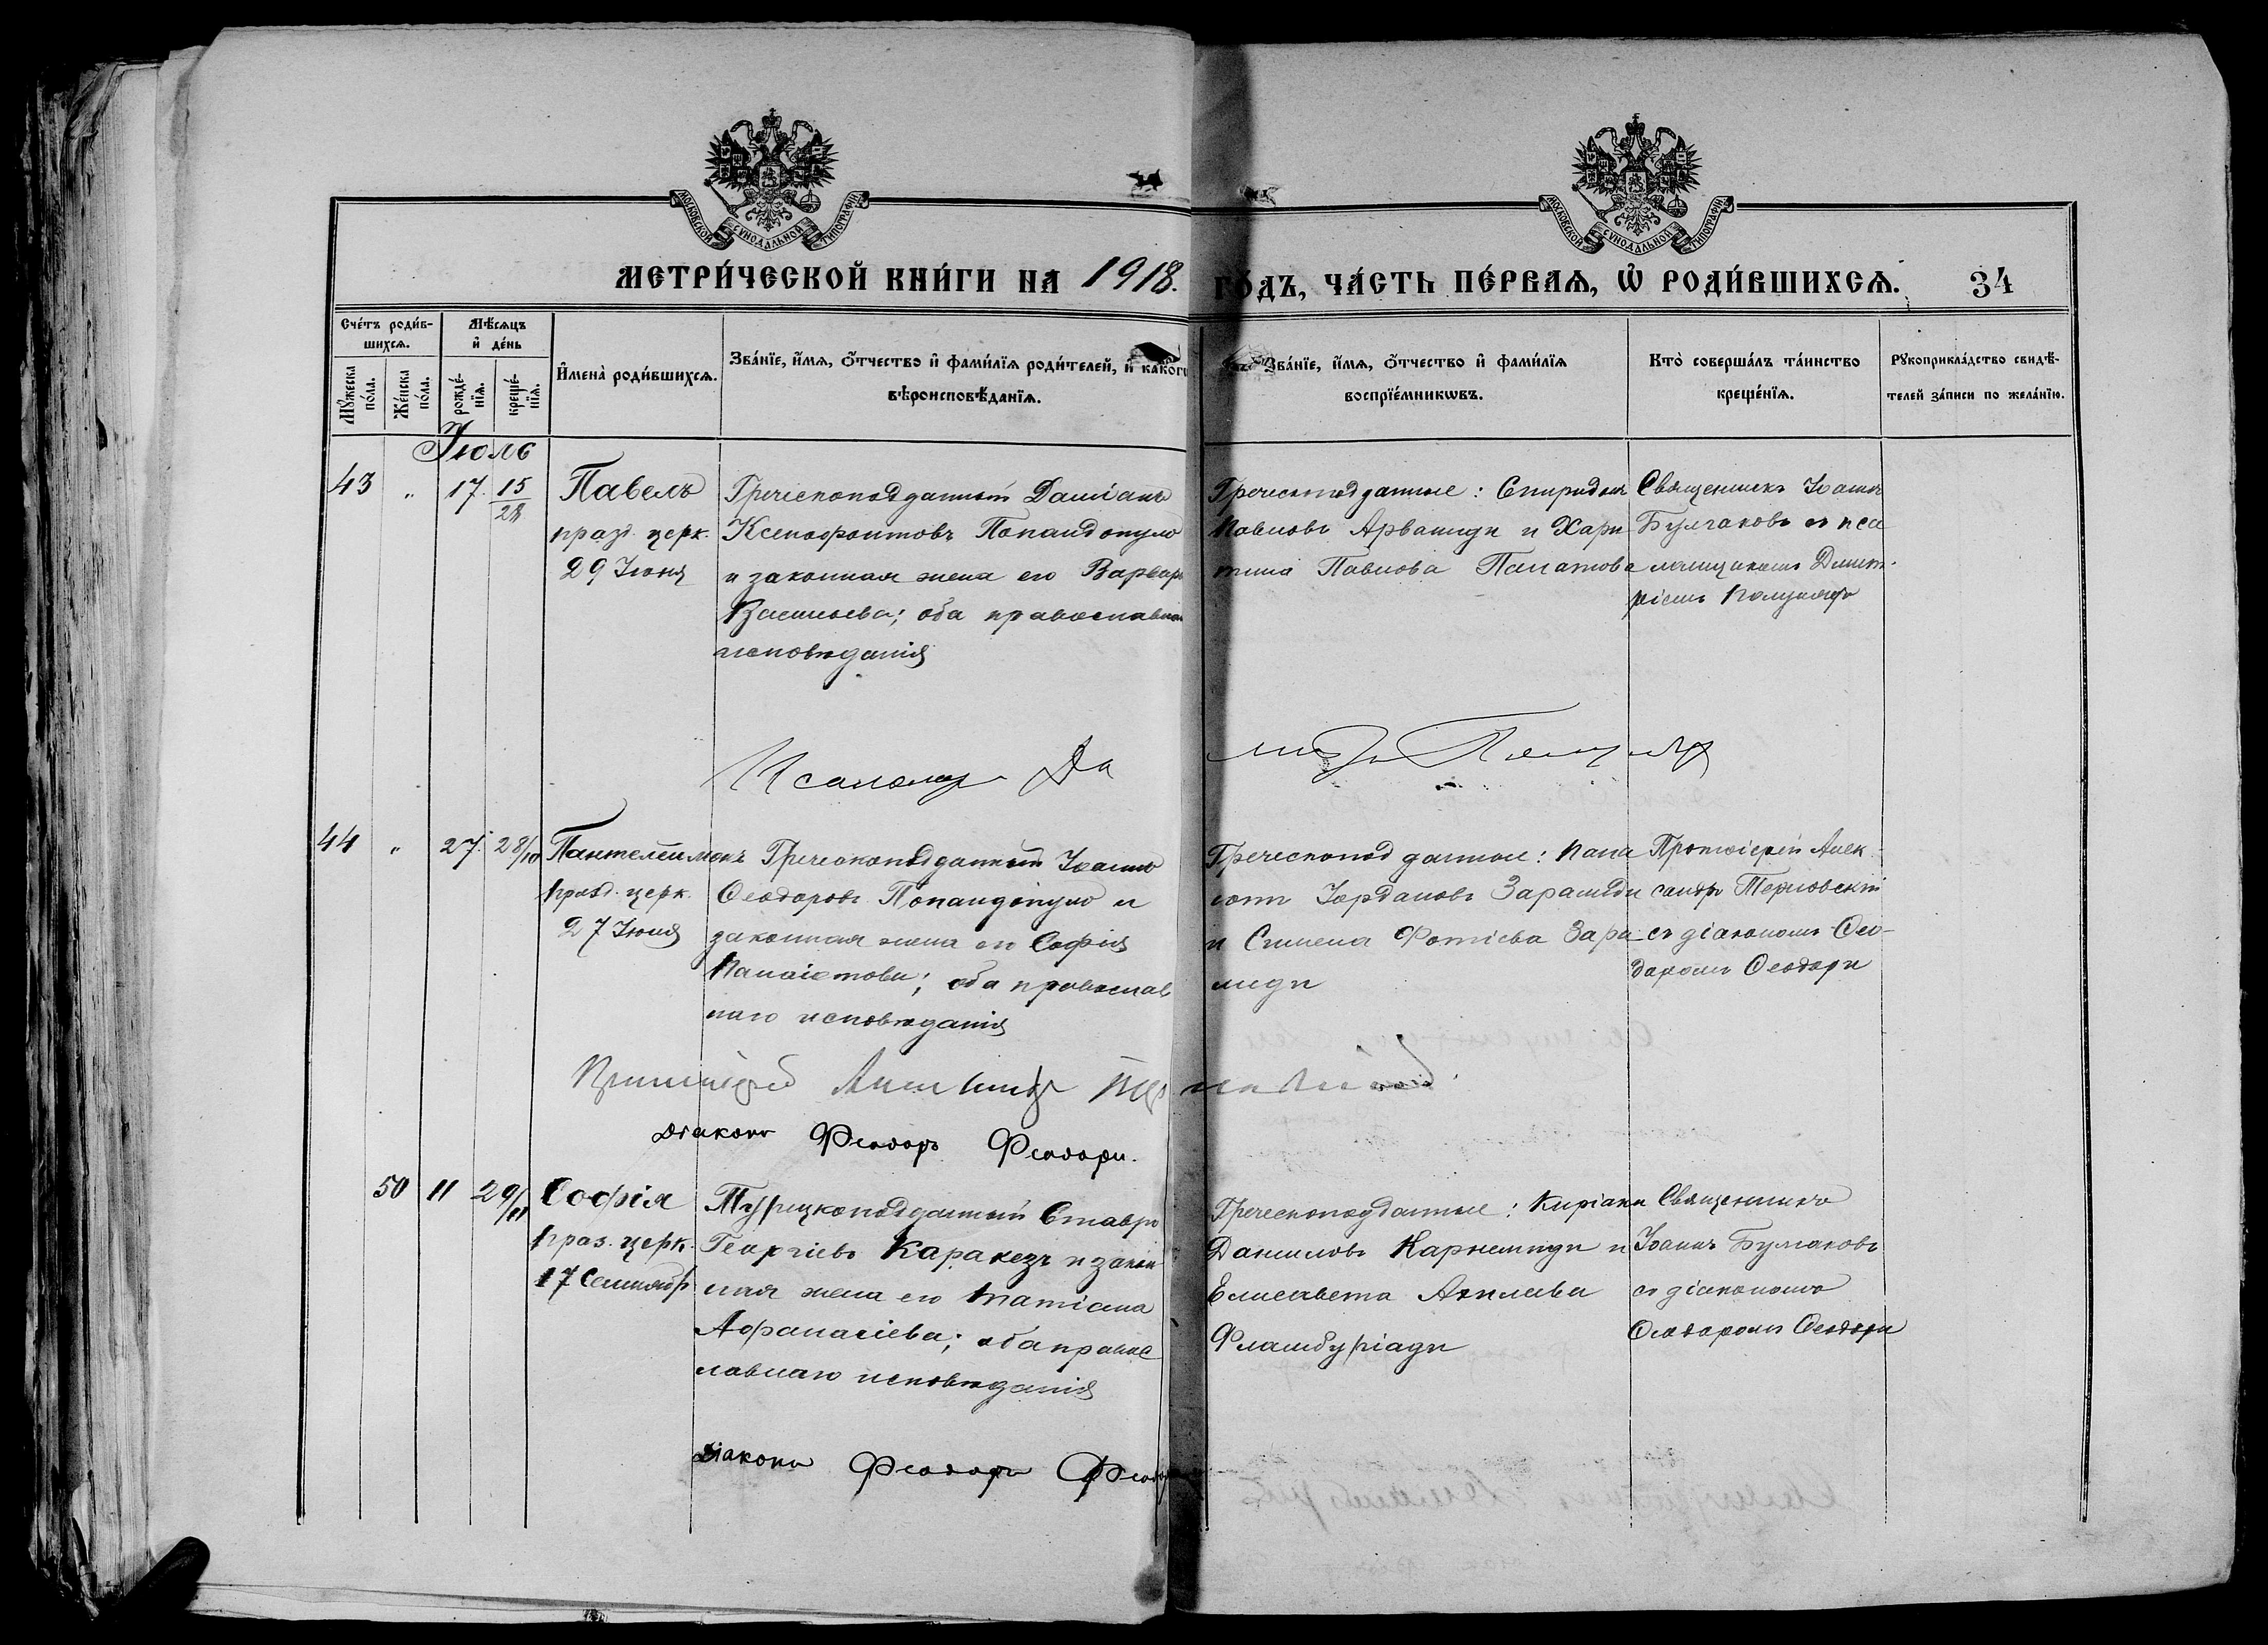 МОСКОВСКОЙ СѴНОДАЛЬНОЙ ТИПОГРАФІИ
МОСКОВСКОЙ СѴНОДАЛЬНОЙ ТИПОГРАФІИ
МЕТРИ́ЧЕСКОЙ КНИ́ГИ НА 1918. ГО́ДЪ, ЧА́СТЬ ПЕ́РВАѦ, Ѡ҆ РОДИ́ВШИХСѦ. 34
Сче́тъ роди́в-
шихсѧ.
Мꙋ́жеска по́ла.
Же́нска по́ла.
Мѣ́сѧцъ
и҆ де́нь
рожде́-
нїѧ.
креще́-
нїѧ.
И҆мена̀ роди́вшихсѧ.
Зва́нїе, и҆́мѧ, ѻ҆́тчество и҆ фами́лїѧ роди́телей, и҆ како́гѡ
вѣроисповѣ́данїѧ.
Зва́нїе, и҆́мѧ, ѻ҆́тчество и҆ фами́лїѧ
воспрїе́мникѡвъ.
Кто̀ соверша́лъ та́инство
креще́нїѧ.
Рꙋкоприкла́дство свидѣ́-
телей за́писи по жела́нїю.
Іюль
43 „ 17. 15/28
Павелъ
празд. церк.
29 Іюня
Греческоподданный Даміанъ
Ксенофонтовъ Попандопуло
и законная жена его Варвара
Васильева; оба православнаго
исповѣданія
Греческоподданные: Спиридонъ
Павловъ Арваниди и Хари
тина Павлова Палатова
Священникъ Іоаннъ
Булгаковъ съ пса
ломщикомъ Димит-
ріемъ
44 „ 27. 28/10
Пантелеимонъ
празд. церк.
27 Іюля
Греческоподданный Іоаннъ
Ѳеодоровъ Попандопуло и
законная жена его Софія
Панаіотова; оба православ
наго исповѣданія
Греческоподданные: Пана
іоти Іордановъ Зарамиди
и Симела Фотіева Зара
миди
Протоіерей Алек-
сандръ Терновскій
съ діакономъ Ѳео-
доромъ Ѳеодори
Протоіерей Александръ Терновскій
Діаконъ Феодоръ Феодори.
50 11 29/11
Софія
праз. церк.
17 Сентября
Турецкоподданный Ставро
Георгіевъ Каракезъ и закон
ная жена его Татіана
Аѳанасіева; оба правос
лавнаго исповѣданія
Греческоподданные: Киріаки
Даниловъ и
Елисавета
Фламбуріади
Священникъ
Іоаннъ Булгаковъ
съ діакономъ
Ѳеодоромъ Ѳеодори
Діаконъ Феодоръ Феодори